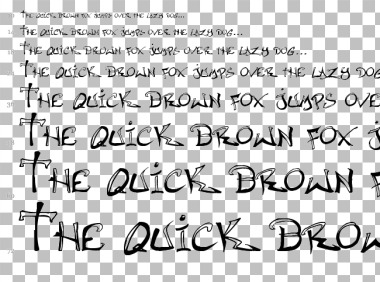 The quick brown fox jumps over the lazy dog...
The quick brown fox jumps over the lazy dog...
The quick brown fox jumps over the lazy dog...
The quick brown fox jumps over the lazy dog
The quick brown fox jumps ove
The quick brown fox j
The quick brown f
The quick brow